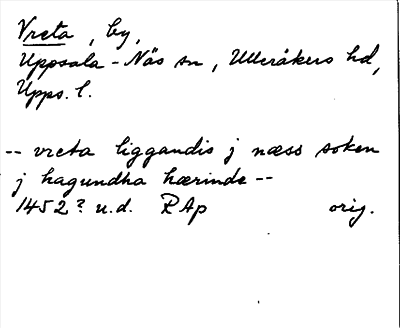 Vreta, by,
Uppsala-Näs sn, Ulleråkers hd,
Upps. l.
-- vreta liggandis j næss soken
j hagundha hærinde --
1452? u.d. RAp orig.